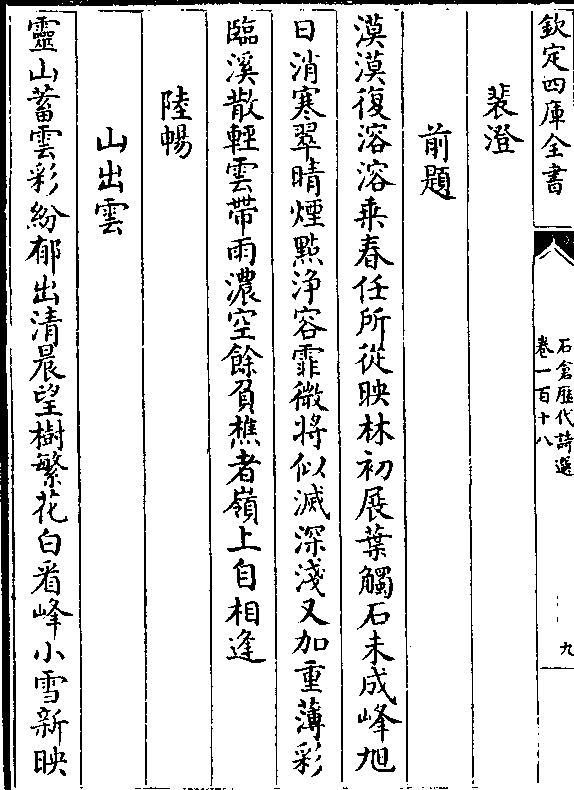 欽定四庫全書
石倉歷代詩選
卷一百十八
九
裴澄
前題
漠漠復溶溶乗春任所從映林初展葉觸石未成峰旭
日消寒翠晴煙㸃浄容霏微將似滅深淺又加重薄彩
臨溪散輕雲帶雨濃空餘負樵者嶺上自相逢
陸暢
山出雲
靈山蓄雲彩紛郁出清晨望樹繁花白看峰小雪新映